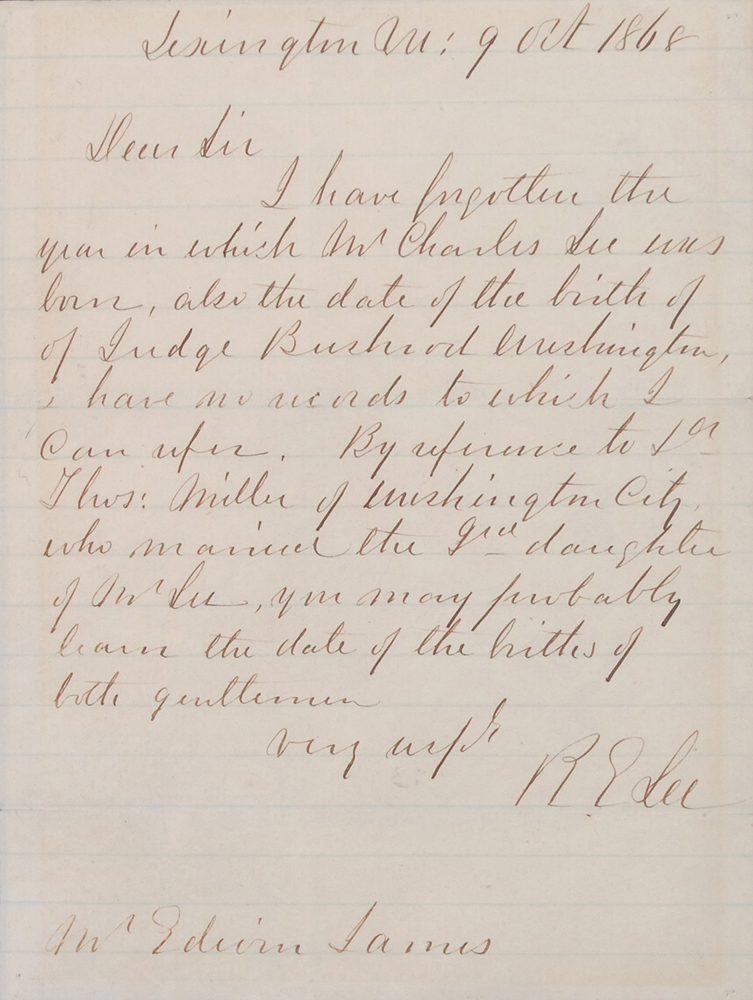 Lexington Va: 9 Oct 1868
Dear Sir
I have forgotten the
year in which Mr Charles Lee was
born, also the date of the birth of
of Judge Bushrod Washington,
& have no records to which I
can refer. By reference to Dr
Thos: Miller of Washington City,
who married the Grd daughter
of Mr Lee, you may probably
learn the date of the births of
both gentlemen
very respy
R E Lee
Mr Edwin James